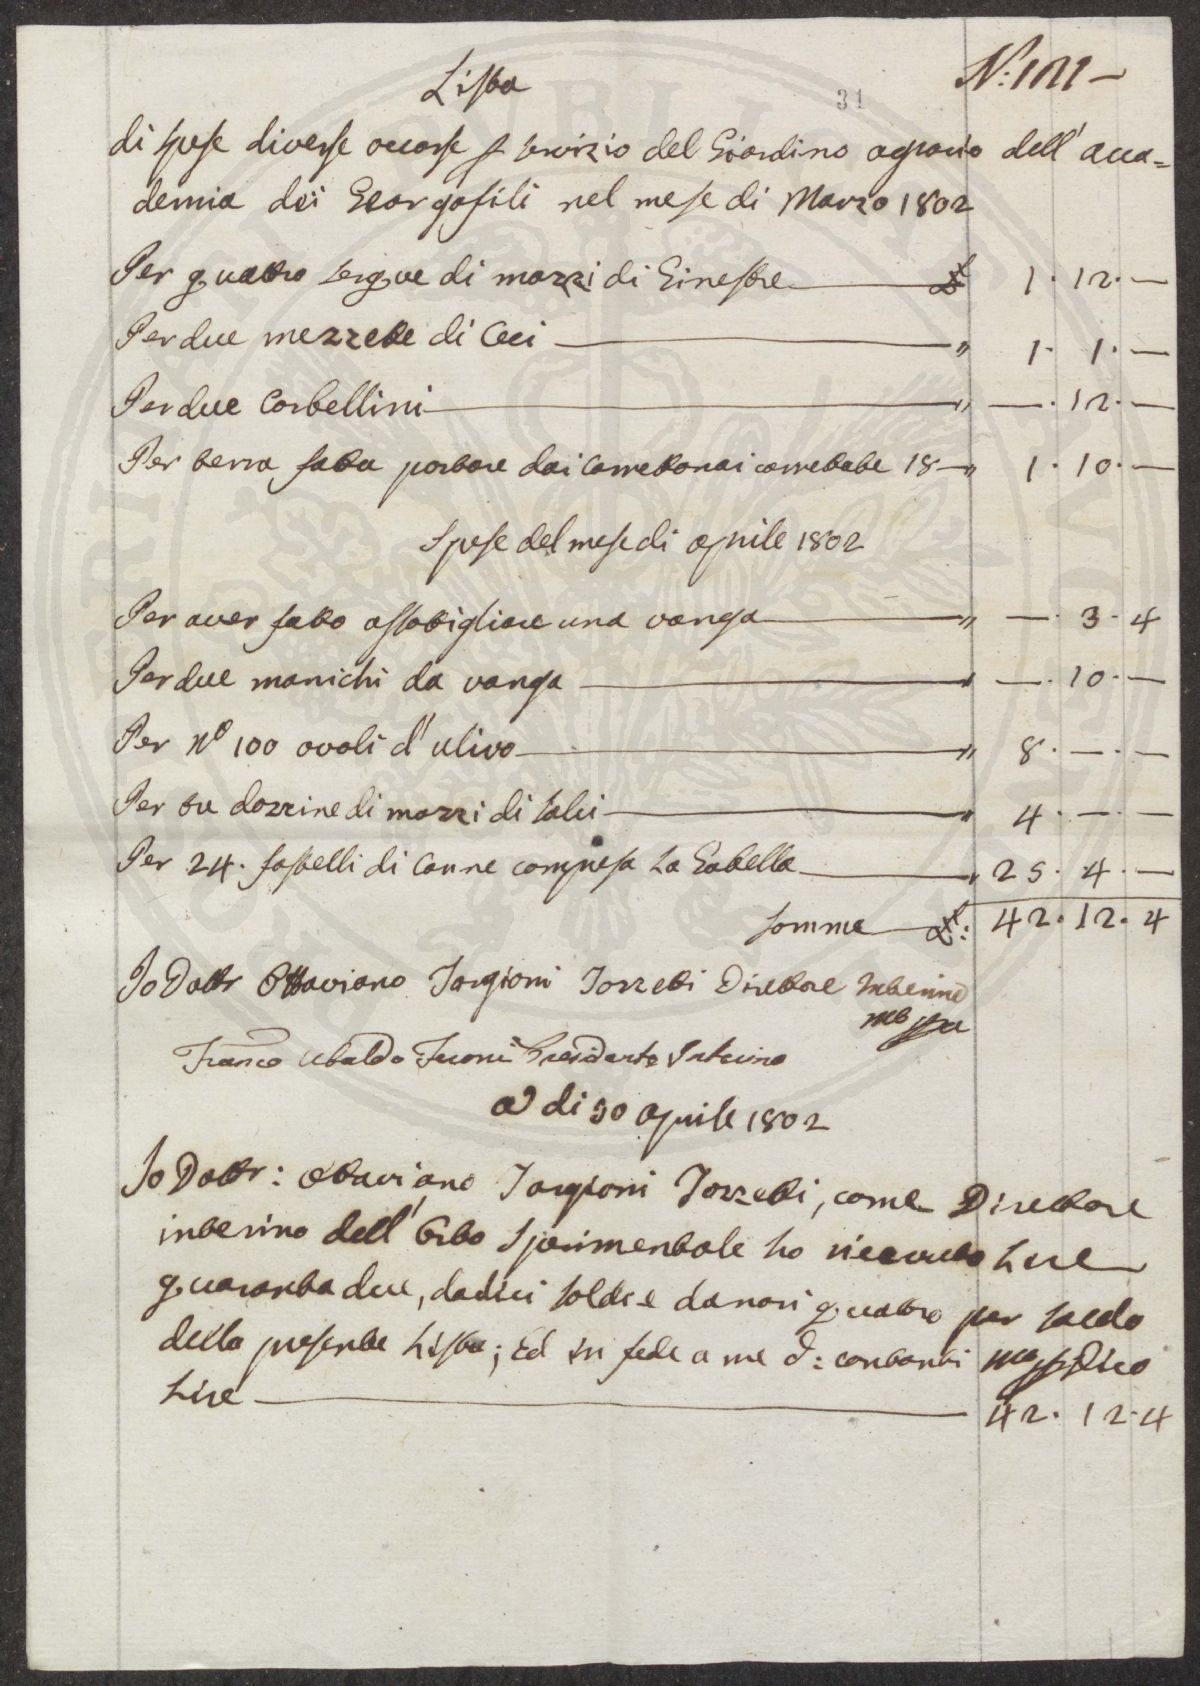 Lista
N: 121 –
31
di spese diverse occorse p servizio del Giardino agrario dell' acca=
demia dei Georgofili nel mese di Marzo 1802
Per quattro serque di mazzi di Ginestre £ 1. 12. —
Per due mezzette di Ceci " 1. 1. —
Per due Corbellini " —. 12. —
Per terra fatta portare dai Carrettonai carrettate 18 " 1. 10. —
Spese del mese di aprile 1802
Per aver fatto assottigliare una vanga " —. 3. 4
Per due manichi da vanga " —. 10. —
Per N° 100 ovoli d' ulivo " 8. —. —
Per tre dozzine di mazzi di salci " 4. —. —
Per 24. fastelli di Canne compresa la Gabella " 25. 4. —
Somma £: 42. 12. 4
Io Dottr Ottaviano Targioni Tozzetti Direttore Interino
mo ppa
Franco Ubaldo Feroni Presidente Interino
a dì 30 aprile 1802
Io Dottr: Ottaviano Targioni Tozzetti, come Direttore
interino dell' Orto Sperimentale ho ricevuto Lire
quaranta due, dodici soldi e danari quattro per saldo
della presente Lista; Ed in fede a me d: contanti mo pp dico
Lire 42. 12. 4